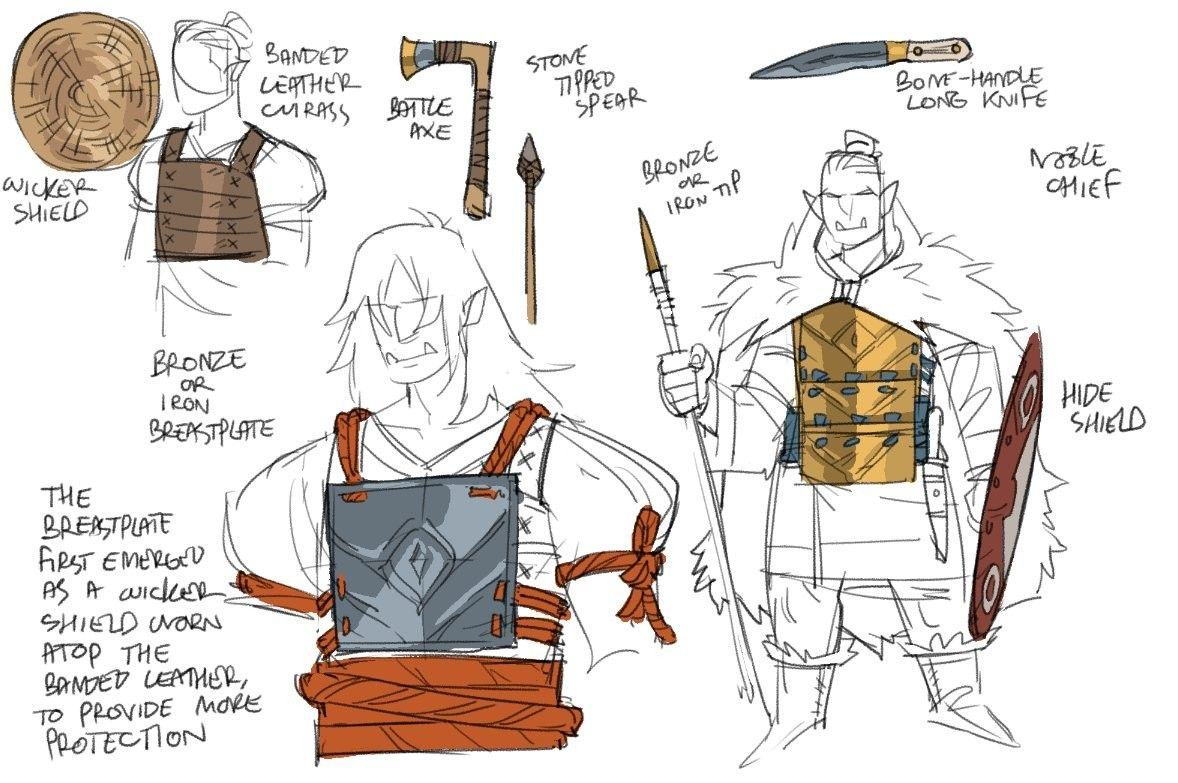 WICKER
SHIELD
BANDED
LEATHER
CUIRASS
BATTLE
AXE
STONE
TIPPED
SPEAR
BONE-HANDLE
LONG KNIFE
BRONZE
OR
IRON TIP
NOBLE
CHIEF
HIDE
SHIELD
BRONZE
OR
IRON
BREASTPLATE
THE
BREASTPLATE
FIRST EMERGED
AS A WICKER
SHIELD WORN
ATOP THE
BANDED LEATHER,
TO PROVIDE MORE
PROTECTION